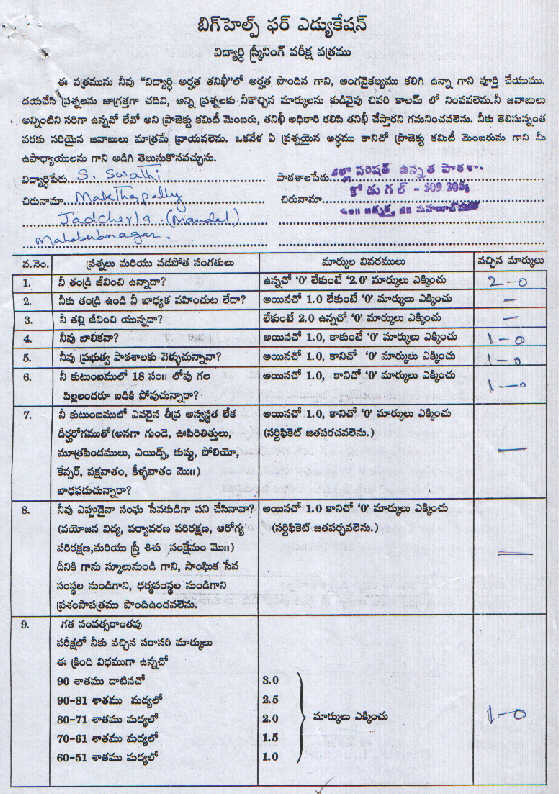 బిగ్‌హెల్ప్ ఫర్ ఎడ్యుకేషన్
విద్యార్థి స్క్రీనింగ్ పరీక్ష పత్రము
ఈ పత్రమును నీవు "విద్యార్థి అర్హత తనిఖీ"లో అర్హత పొందిన గాని, అంగవైకల్యము కలిగి ఉన్నా గాని పూర్తి చేయుము.
దయచేసి ప్రశ్నలను జాగ్రత్తగా చదివి, అన్ని ప్రశ్నలకు నీకొచ్చిన మార్కులను కుడివైపు చివరి కాలమ్ లో నింపవలెను.నీ జవాబులు
అన్నింటిని సరిగా ఉన్నవో లేవో అని ప్రాజెక్టు కమిటీ మెంబరు, తనిఖీ అధికారి కలిసి తనిఖీ చేస్తారని గమనించవలెను. నీకు తెలిసినంత
వరకు సరియైన జవాబులు మాత్రమే వ్రాయవలెను. ఒకవేళ ఏ ప్రశ్నయైన అర్థము కానిచో ప్రాజెక్టు కమిటీ మెంబరును గాని మీ
ఉపాధ్యాయులను గాని అడిగి తెలుసుకొనవచ్చును.
విద్యార్థిపేరు S. Swathi పాఠశాలపేరు జిల్లా పరిషత్ ఉన్నత పాఠశాల
చిరునామా Makthapally చిరునామా కోడుగల్ - 509
Jadcherla (Mandal)
Mahabubnagar
వ.నెం. ప్రశ్నలు మరియు వడపోత సంగతులు మార్కుల వివరములు వచ్చిన మార్కులు
1. నీ తండ్రి జీవించి ఉన్నాడా? ఉన్నచో '0' లేకుంటే '2.0' మార్కులు ఎక్కించు 2-0
2. నీకు తండ్రి ఉండి నీ బాధ్యత వహించుట లేదా? అయినచో 1.0 లేకుంటే '0' మార్కులు ఎక్కించు —
3. నీ తల్లి జీవించి యున్నదా? లేకుంటే 2.0 ఉన్నచో '0' మార్కులు ఎక్కించు —
4. నీవు బాలికవా? అయినచో 1.0, కాకుంటే '0' మార్కులు ఎక్కించు 1-0
5. నీవు ప్రభుత్వ పాఠశాలకు వెళ్ళుచున్నావా? అయినచో 1.0, కానిచో '0' మార్కులు ఎక్కించు 1-0
6. నీ కుటుంబములో 18 సం॥ లోపు గల అయినచో 1.0, కానిచో '0' మార్కులు ఎక్కించు 1-0
పిల్లలందరూ బడికి పోవుచున్నారా?
7. నీ కుటుంబములో ఎవరైన తీవ్ర అస్వస్థత లేక అయినచో 1.0, కానిచో '0' మార్కులు ఎక్కించు —
దీర్ఘరోగముతో(అనగా గుండె, ఊపిరితిత్తులు, (సర్టిఫికెట్ జతపరచవలెను.)
మూత్రపిండములు, ఎయిడ్స్, కుష్ఠు, పోలియో,
కేన్సర్, పక్షవాతం, కీళ్ళవాతం మొ॥)
బాధపడుచున్నారా?
8. నీవు ఎప్పుడైనా సంఘ సేవకుడిగా పని చేసినావా? అయినచో 1.0 కానిచో '0' మార్కులు ఎక్కించు —
(వయోజన విద్య, పర్యావరణ పరిరక్షణ, ఆరోగ్య (సర్టిఫికెట్ జతపర్చవలెను.)
పరిరక్షణ,మరియు స్త్రీ శిశు సంక్షేమం మొ॥)
దీనికి గాను స్కూలునుండి గాని, సాంఘిక సేవ
సంస్థల నుండిగాని, ధర్మసంస్థల నుండిగాని
ప్రశంసాపత్రము పొందిఉండవలెను.
9. గత సంవత్సరాంతపు
పరీక్షలో నీకు వచ్చిన సరాసరి మార్కులు
ఈ క్రింది విధముగా ఉన్నచో
90 శాతము దాటినచో 3.0
90-81 శాతము మధ్యలో 2.5
80-71 శాతము మధ్యలో 2.0 మార్కులు ఎక్కించు 1-0
70-61 శాతము మధ్యలో 1.5
60-51 శాతము మధ్యలో 1.0